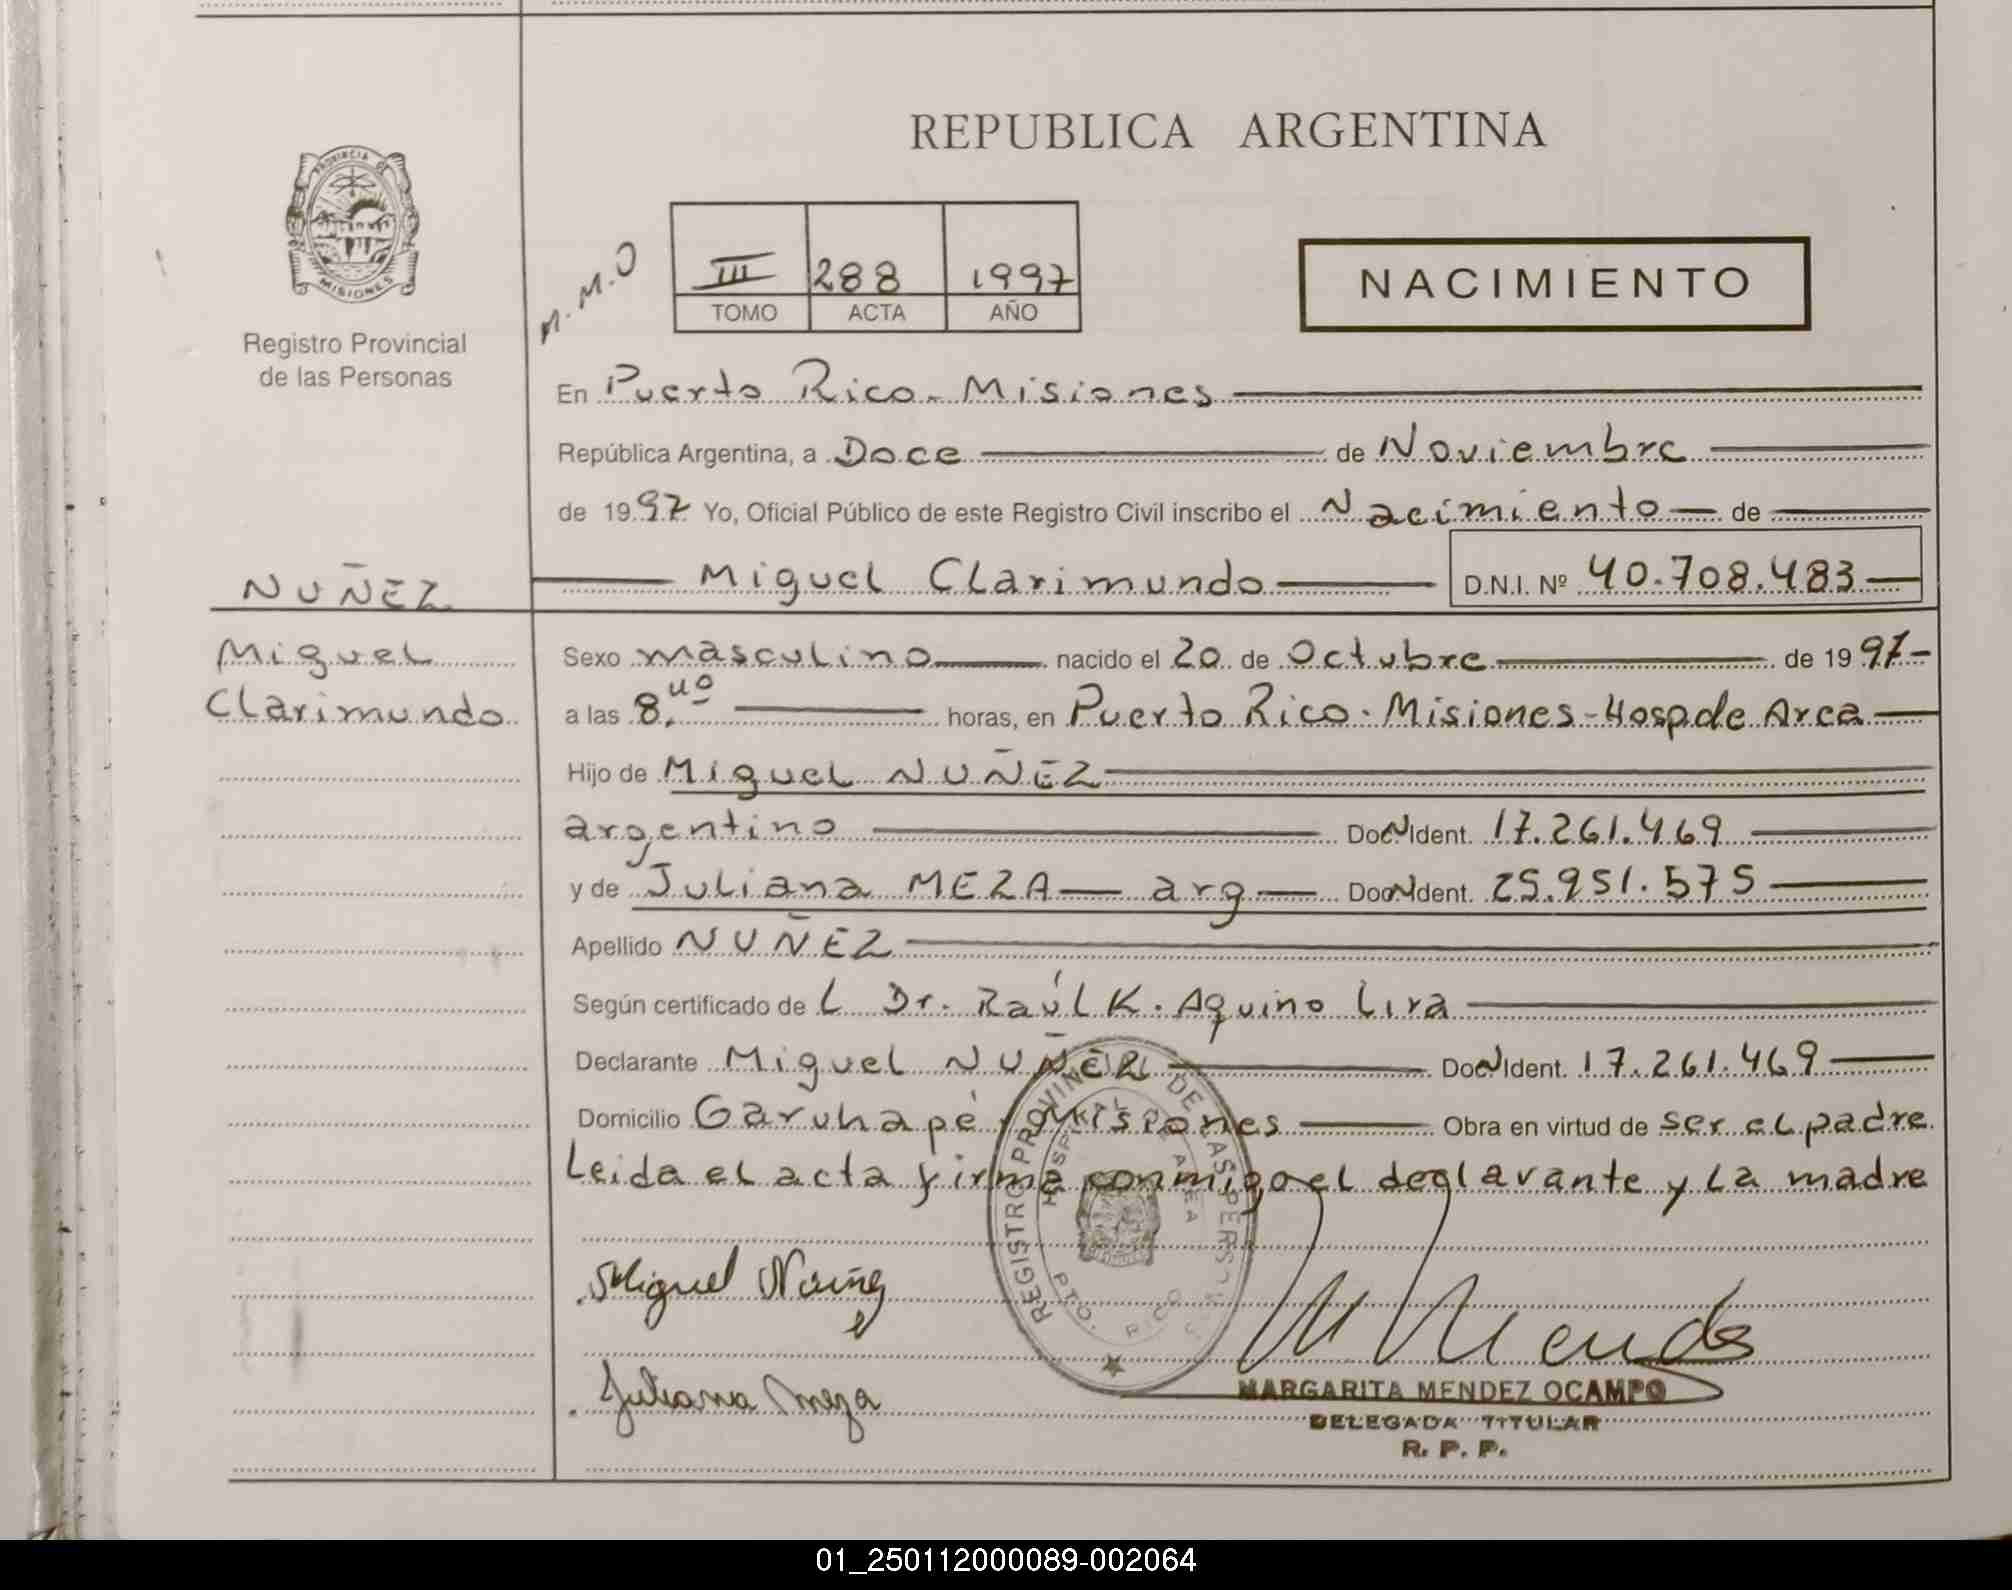 REPUBLICA ARGENTINA
PROVINCIA DE
MISIONES
Registro Provincial
de las Personas
M.M.O
III 288 1997
TOMO ACTA AÑO
NACIMIENTO
En Puerto Rico - Misiones
República Argentina, a Doce de Noviembre
de 1997 Yo, Oficial Público de este Registro Civil inscribo el Nacimiento de
Miguel Clarimundo D.N.I. Nº 40.708.483
NUÑEZ
Miguel
Clarimundo
Sexo masculino nacido el 20 de Octubre de 1997
a las 8. horas, en Puerto Rico - Misiones - Hosp de Area
Hijo de Miguel NUÑEZ
argentino Doc N Ident. 17.261.469
y de Juliana MEZA arg Doc N Ident. 25.951.575
Apellido NUÑEZ
Según certificado de L Dr. Raúl K. Aquino Lira
Declarante Miguel NUÑEZ Doc N Ident. 17.261.469
Domicilio Garuhapé - Misiones Obra en virtud de ser el padre
Leida el acta firma conmigo el declarante y La madre
REGISTRO PROVINCIAL DE LAS PERSONAS
HOSPITAL DE AREA
PTO. RICO
Miguel Nuñez
Juliana Meza
M Mendez
MARGARITA MENDEZ OCAMPO
DELEGADA TITULAR
R. P. P.
01_250112000089-002064